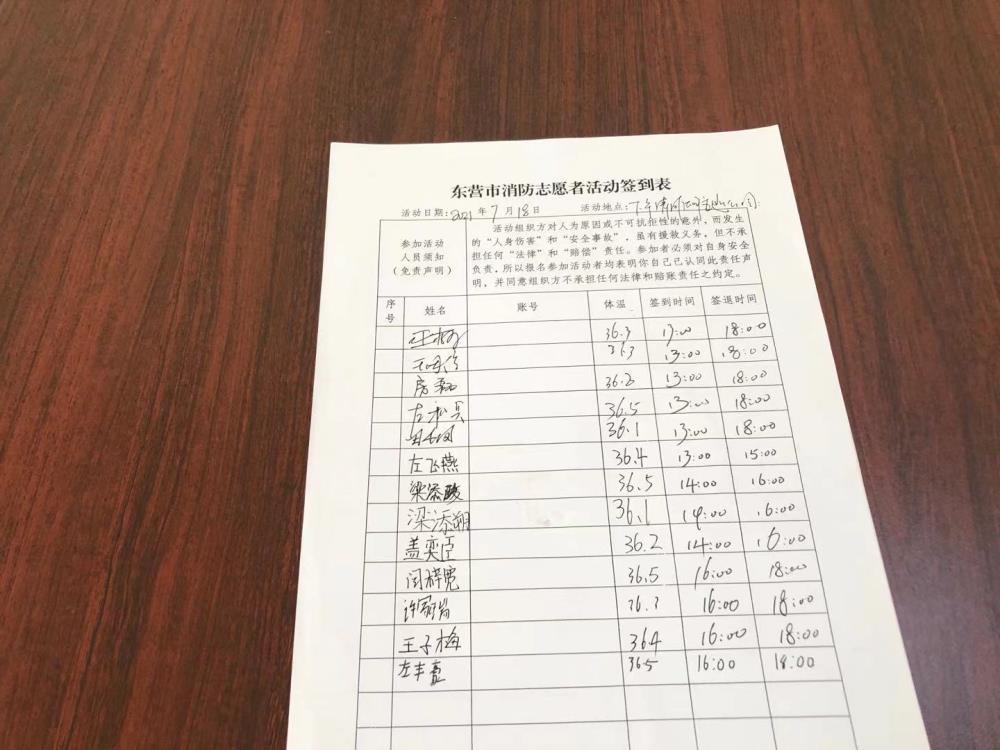 东营市消防志愿者活动签到表
活动日期：2021年7月18日 活动地点：
参加活动
人员须知
（免责声明）
活动组织方对人为原因或不可抗拒性的意外，而发生
的“人身伤害”和“安全事故”，虽有援救义务，但不承
担任何“法律”和“赔偿”责任。参加者必须对自身安全
负责，所以报名参加活动者均表明你自己已认同此责任声
明，并同意组织方不承担任何法律和赔账责任之约定。
序号 姓名 账号 体温 签到时间 签退时间
36.3 13:00 18:00
36.3 13:00 18:00
房 36.2 13:00 18:00
左 36.5 13:00 18:00
36.1 13:00 18:00
左飞燕 36.4 13:00 15:00
梁添 36.5 14:00 16:00
梁添翔 36.1 14:00 16:00
盖奕臣 36.2 14:00 16:00
闫梓宽 36.5 16:00 18:00
许 36.3 16:00 18:00
王子梅 364 16:00 18:00
左丰 365 16:00 18:00